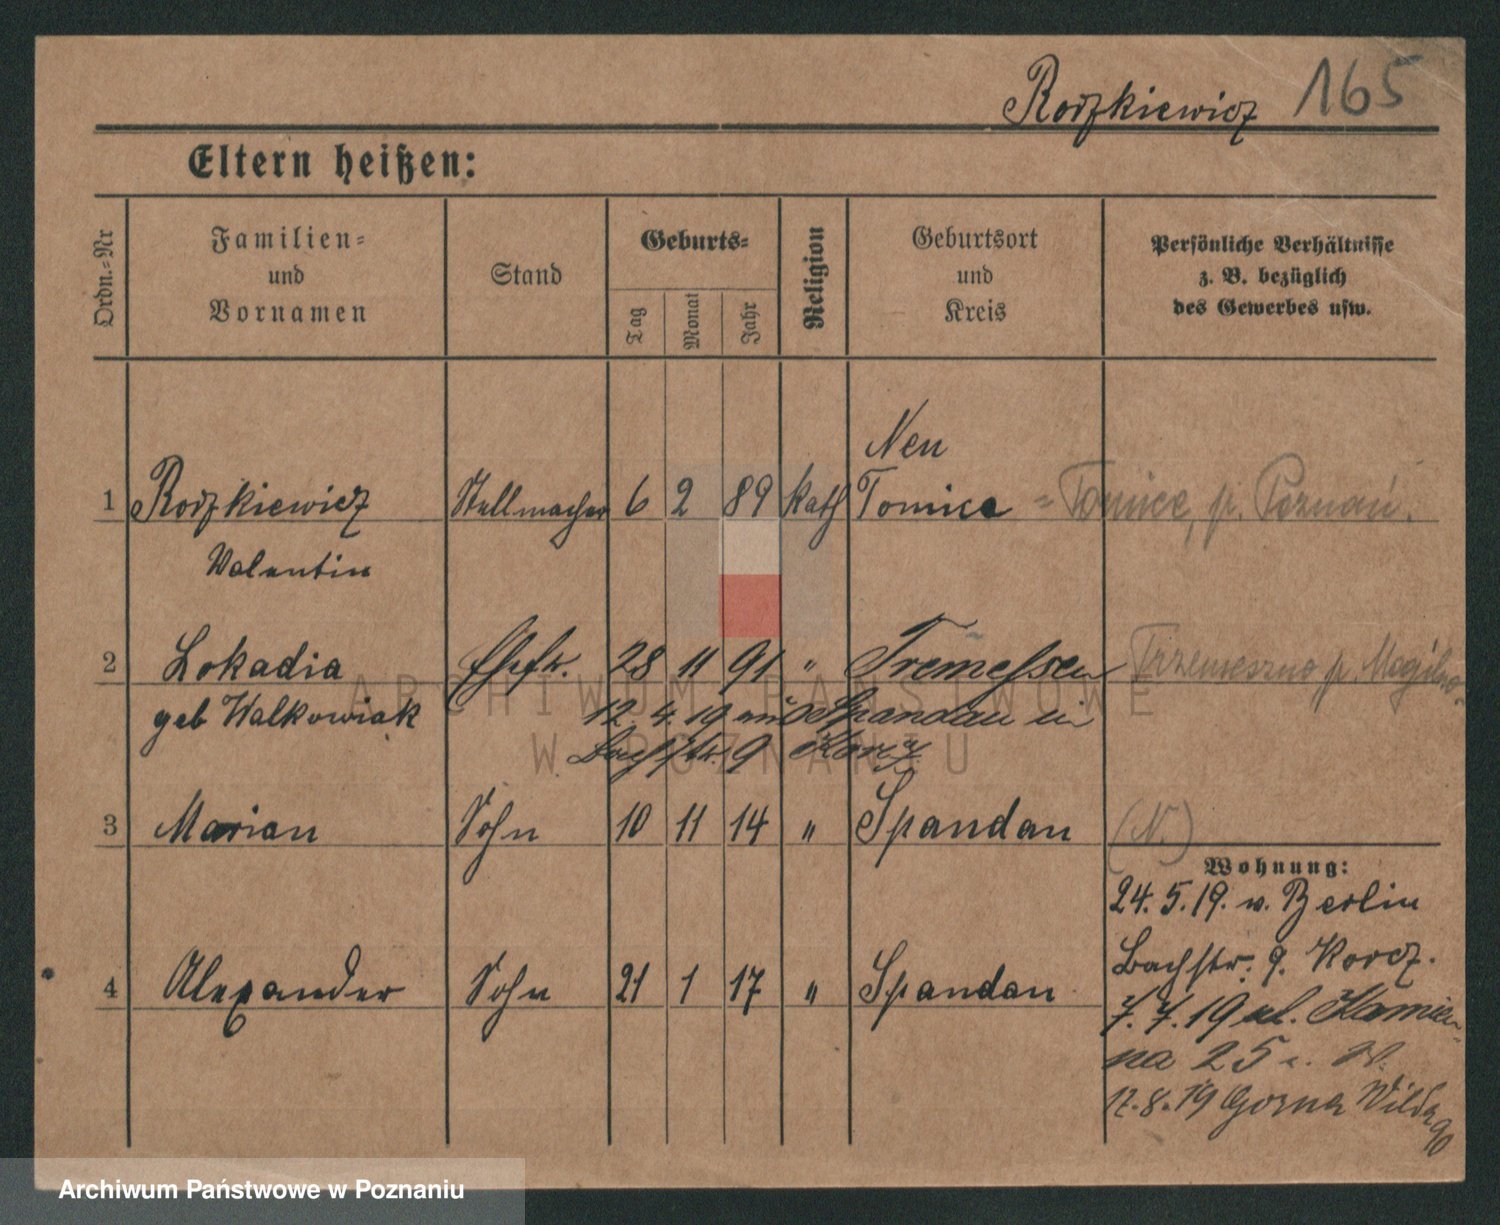 Rodzkiewicz 165
Eltern heißen:
Ordn.-Nr
Familien-
und
Vornamen
Stand
Geburts-
Tag
Monat
Jahr
Religion
Geburtsort
und
Kreis
Persönliche Verhältnisse
z. B. bezüglich
des Gewerbes usw.
Neu
1 Rodzkiewicz Stellmacher 6 2 89 kath Tomice = Tomice, p. Poznań.
Walentin
2 Lokadia Ehefr. 28 11 91 " Tremessen Trzemeszno p. Mogilno
geb Walkowiak 12. 4. 19 aus Spandau in
Bachstr. 9
3 Marian Sohn 10 11 14 " Spandau (N.)
Wohnung:
24. 5. 19. v. Berlin
Bachstr. 9.
4 Alexander Sohn 21 1 17 " Spandau
7. 7. 19 ul. Kamien-
na 25
17. 8. 19 Gorna Wilda
90
ARCHIWUM PAŃSTWOWE
W POZNANIU
Archiwum Państwowe w Poznaniu